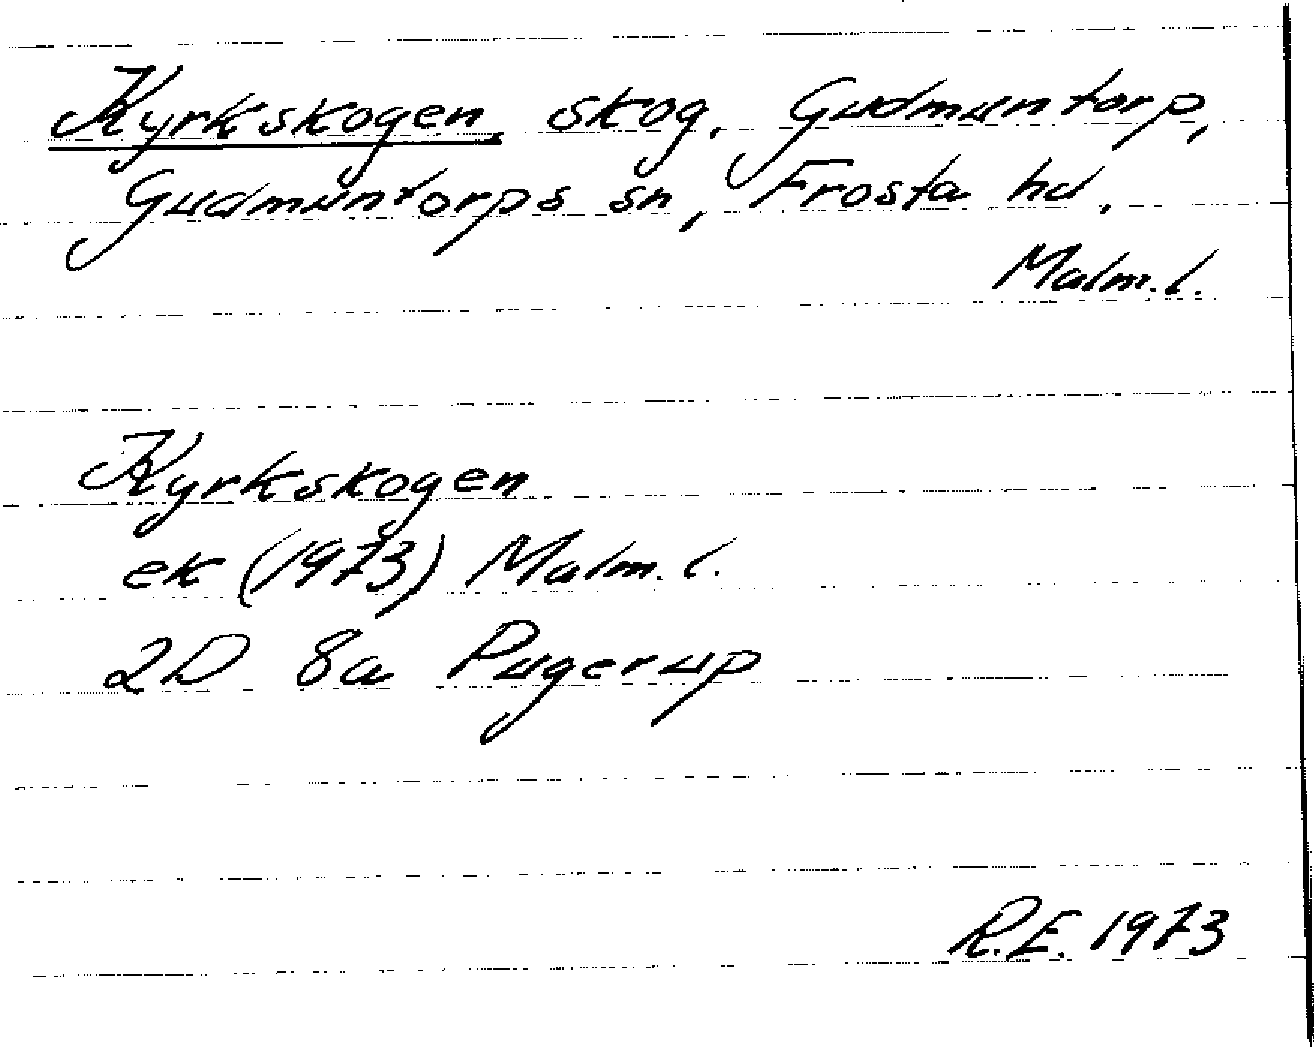 Kyrkskogen, skog, Gudmuntorp,
Gudmuntorps sn, Frosta hd.
Malm.l.
Kyrkskogen
ek (1973) Malm.l.
2D 8a Pugerup
R.E. 1973